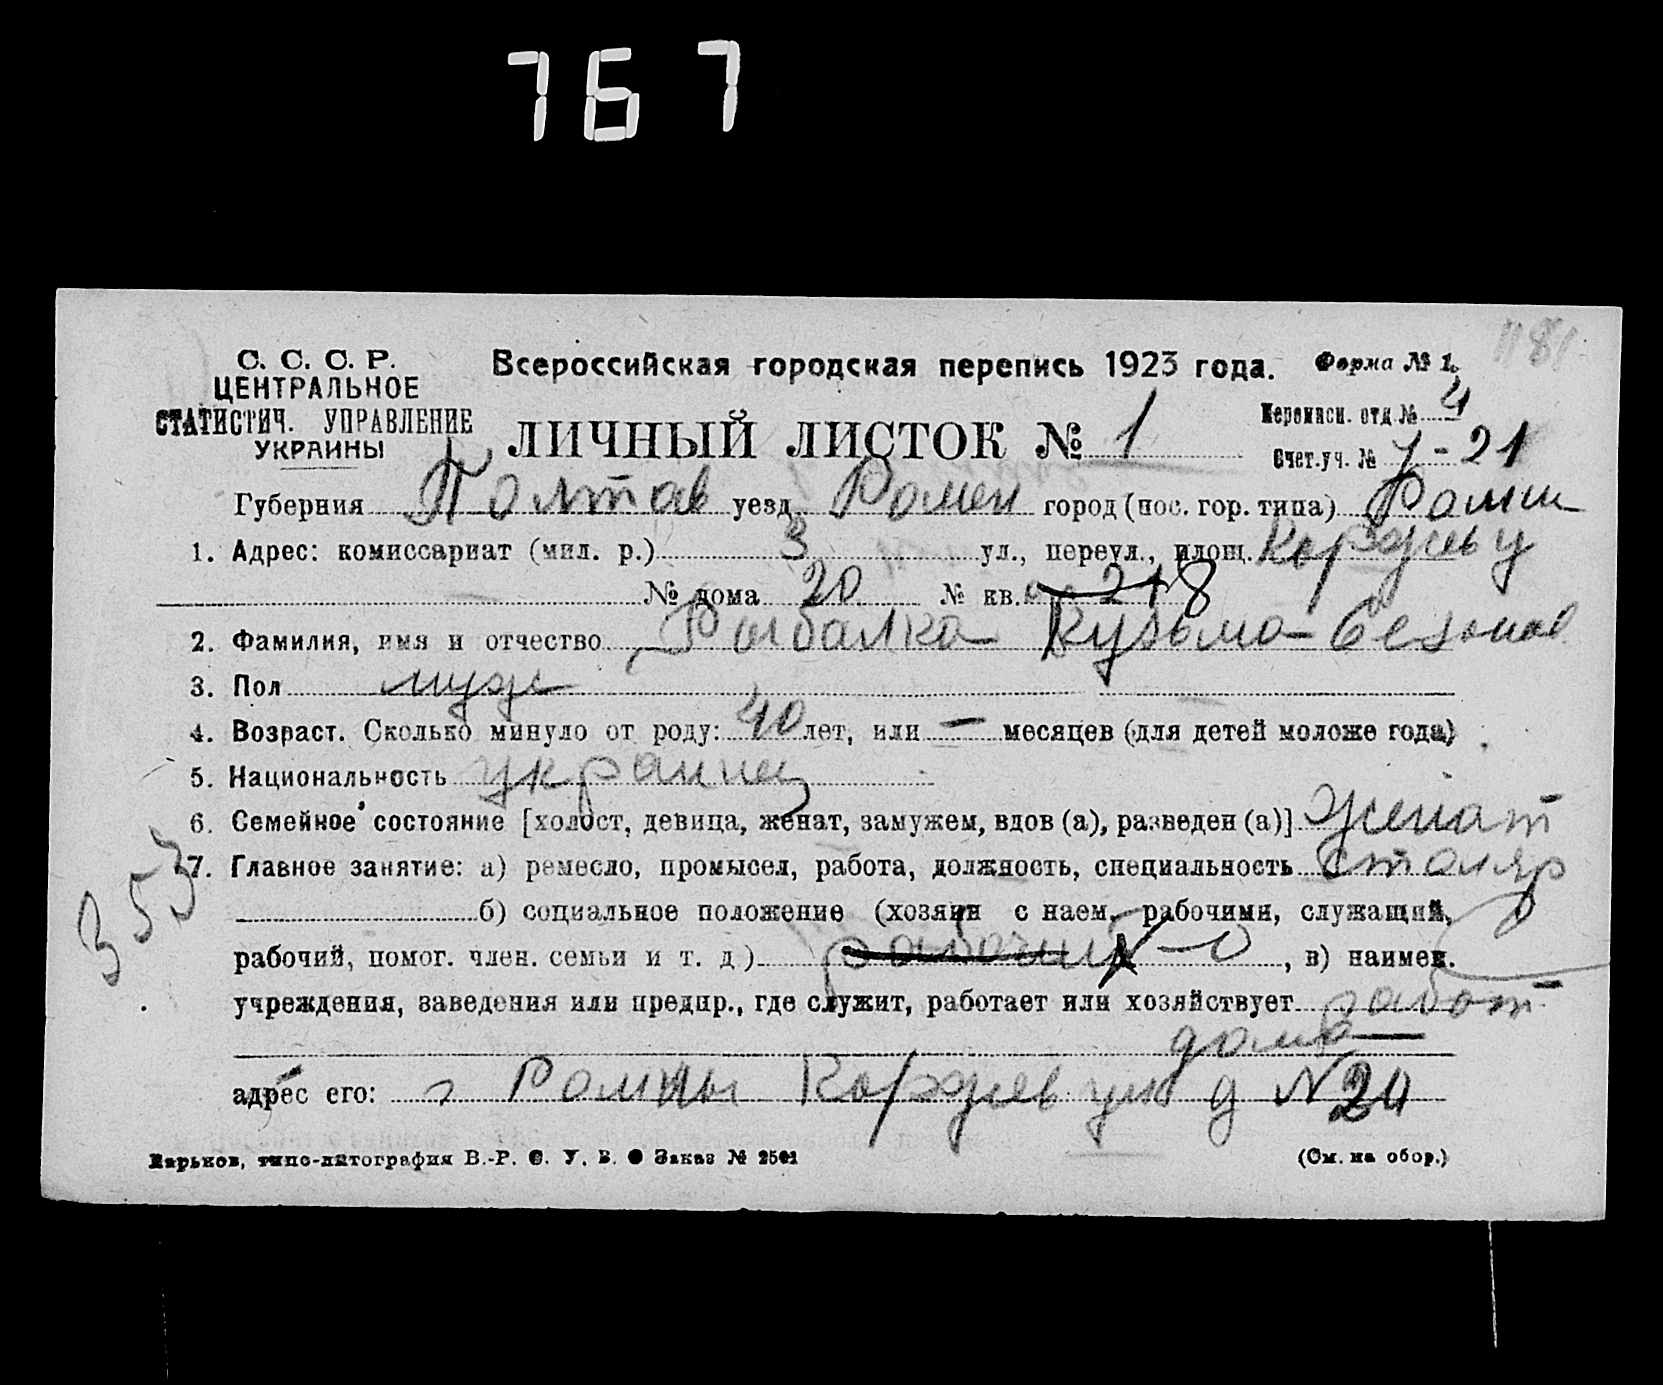 767
1181
С. С. С. Р.
ЦЕНТРАЛЬНОЕ
СТАТИСТИЧ. УПРАВЛЕНИЕ
УКРАИНЫ
Всероссийская городская перепись 1923 года.
Форма № 1.
ЛИЧНЫЙ ЛИСТОК № 1
Переписн. отд. № 4
Счет. уч. № 7-21
Губерния Полтав уезд Ромен город (пос. гор. типа) Ромни
1. Адрес: комиссариат (мил. р.) 3 ул., переул., площ. Коржевь у
№ дома 20 № кв. 8
2. Фамилия, имя и отчество Рыбалка Кузьма
3. Пол муж
4. Возраст. Сколько минуло от роду: 40 лет, или — месяцев (для детей моложе года)
5. Национальность украинец
6. Семейное состояние [холост, девица, женат, замужем, вдов (а), разведен (а)] женат
7. Главное занятие: а) ремесло, промысел, работа, должность, специальность столяр
353
б) социальное положение (хозяин с наем. рабочими, служащий,
рабочий, помог. член. семьи и т. д.) рабочий х-о, в) наимен.
учреждения, заведения или предпр., где служит, работает или хозяйствует работ
дома
адрес его: г Ромны Коржев ул д № 20
Харьков, типо-литография В.-Р. С. У. В. Заказ № 2501
(См. на обор.)